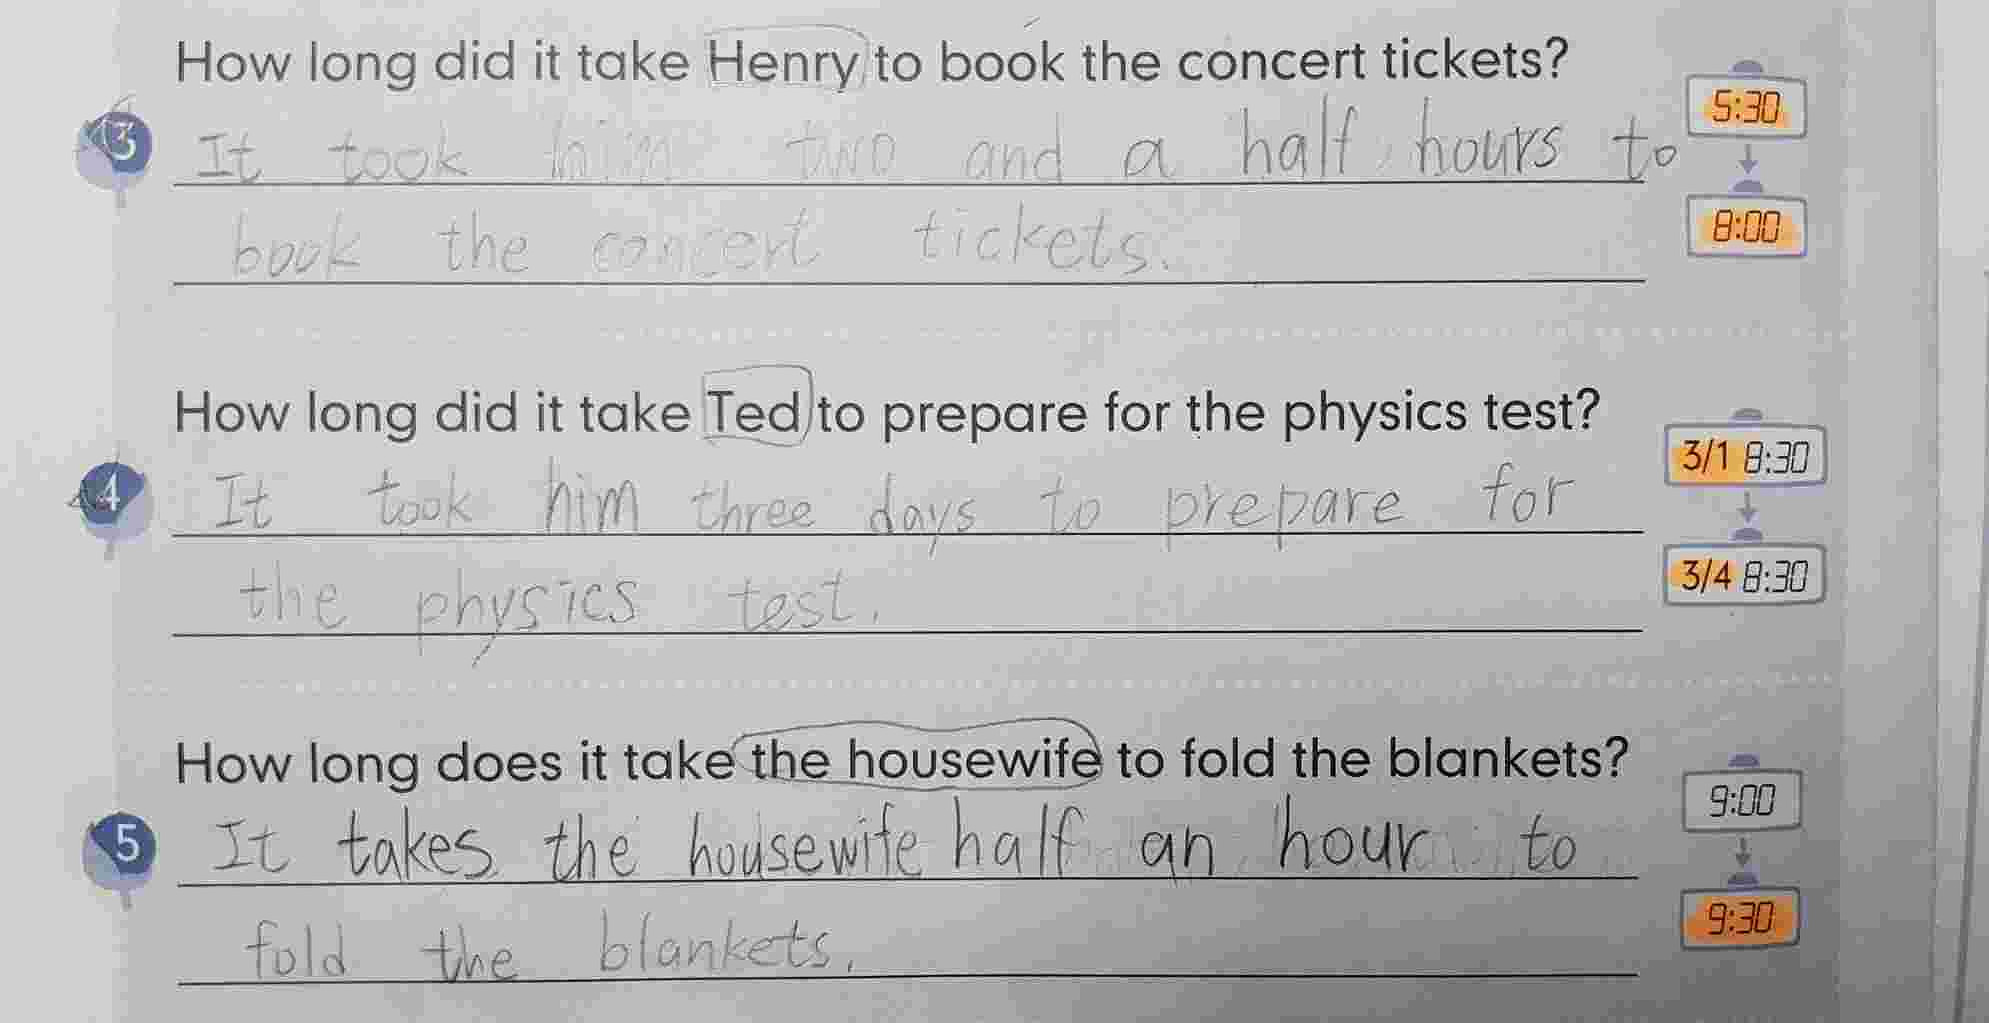 How long did it take Henry to book the concert tickets?
5:30
3
It took him two and a half hours to
8:00
book the concert tickets.
How long did it take Ted to prepare for the physics test?
3/1 8:30
4
It took him three days to prepare for
3/4 8:30
the physics test.
How long does it take the housewife to fold the blankets?
9:00
5
It takes the housewife half an hour to
9:30
fold the blankets.